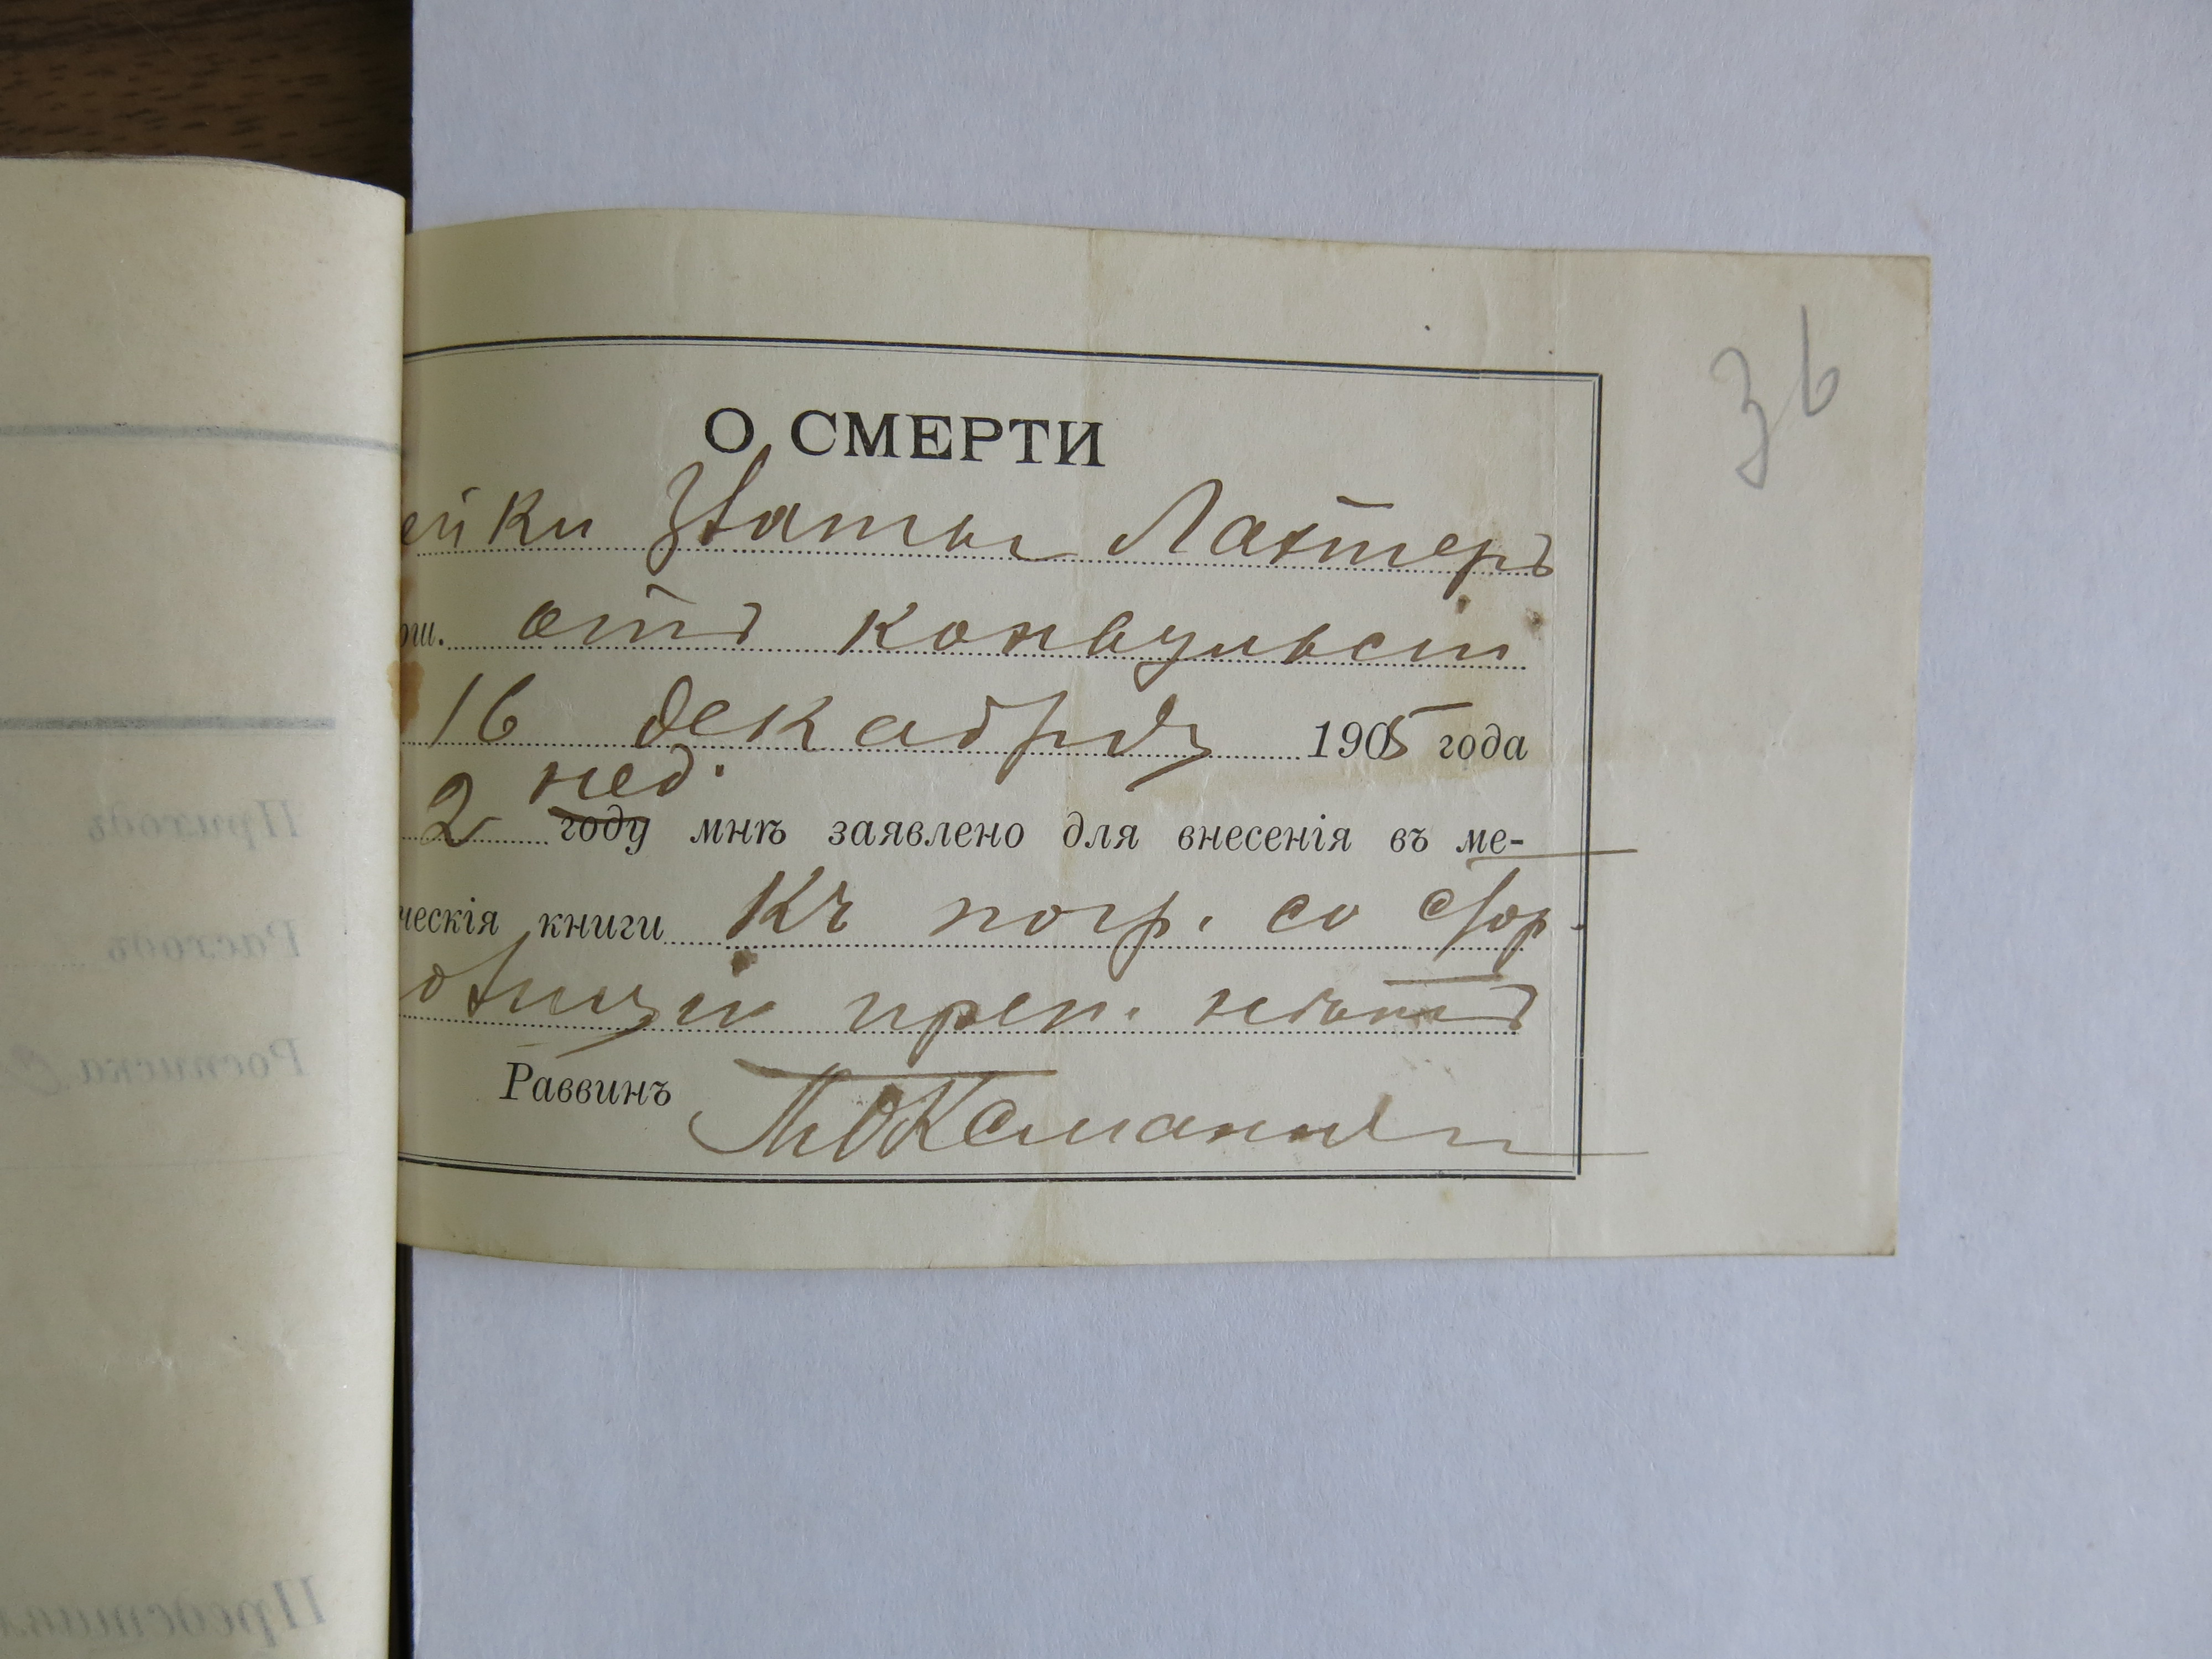 36
О СМЕРТИ
ейки Златы Лахтеръ
ош. отъ конвульсіи
16 декабря 1905 года
2 нед. году мнѣ заявлено для внесенія въ ме-
ческія книги Къ погр. со стор.
полиціи преп. нѣтъ
Раввинъ
Приходъ
Расходъ
Росписка